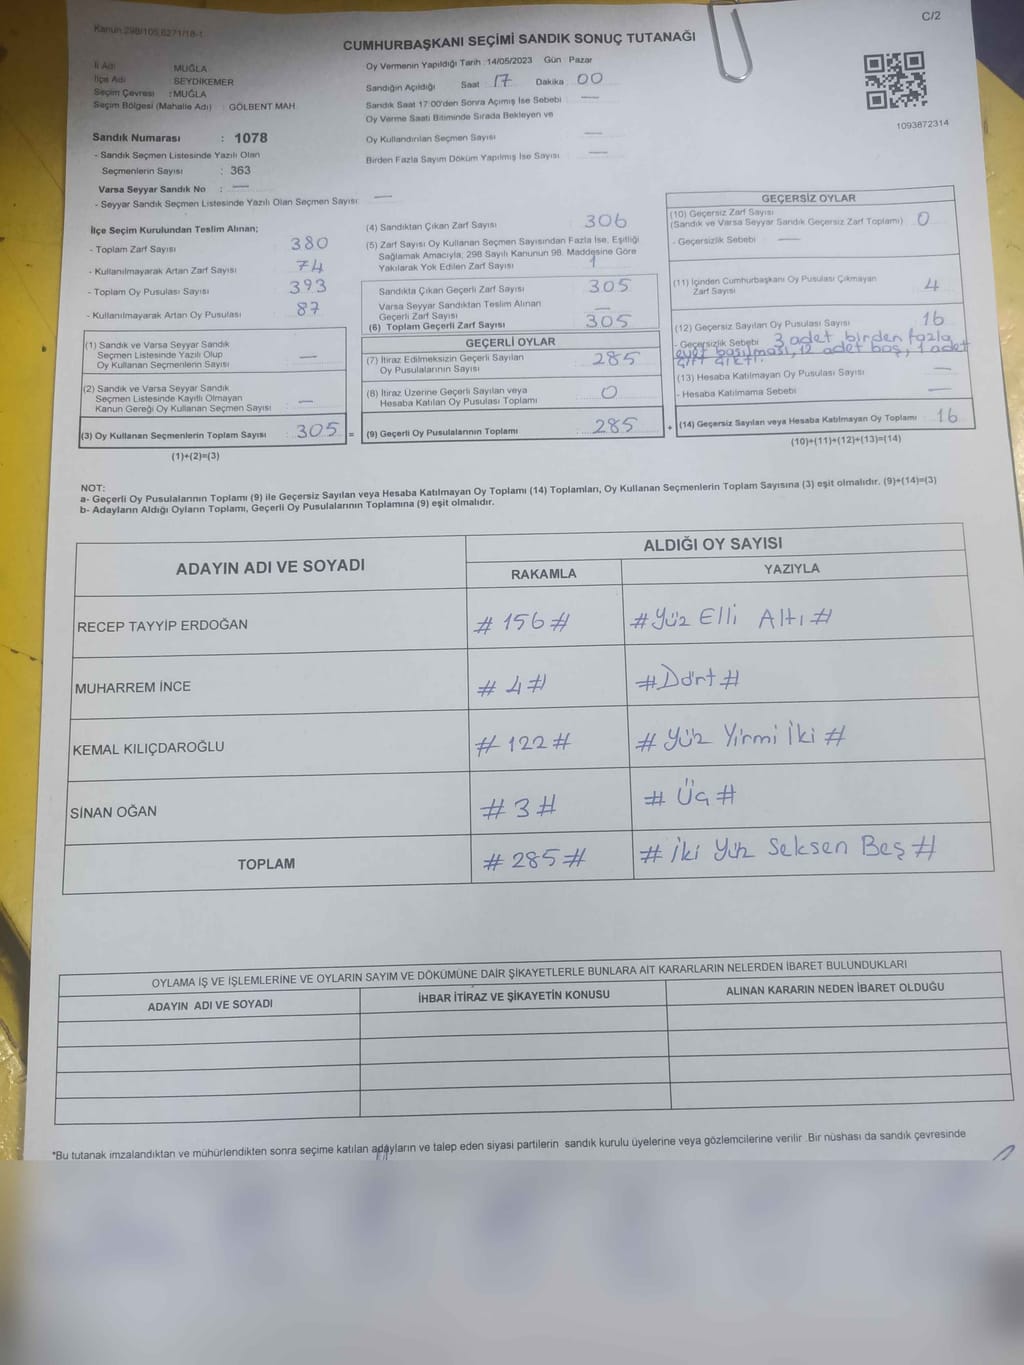 Kanun.298/105,6271/18-1
C/2
CUMHURBAŞKANI SEÇİMİ SANDIK SONUÇ TUTANAĞI
İl Adı : MUĞLA
İlçe Adı : SEYDİKEMER
Seçim Çevresi : MUĞLA
Seçim Bölgesi (Mahalle Adı) : GÖLBENT MAH.
Sandık Numarası : 1078
- Sandık Seçmen Listesinde Yazılı Olan
Seçmenlerin Sayısı : 363
Varsa Seyyar Sandık No : —
- Seyyar Sandık Seçmen Listesinde Yazılı Olan Seçmen Sayısı: —
Oy Vermenin Yapıldığı Tarih :14/05/2023 Gün Pazar
Sandığın Açıldığı Saat : 17 Dakika 00
Sandık Saat 17:00'den Sonra Açımış İse Sebebi —
Oy Verme Saati Bitiminde Sırada Bekleyen ve
Oy Kullandırılan Seçmen Sayısı —
Birden Fazla Sayım Döküm Yapılmış İse Sayısı —
1093872314
İlçe Seçim Kurulundan Teslim Alınan;
- Toplam Zarf Sayısı 380
- Kullanılmayarak Artan Zarf Sayısı 74
- Toplam Oy Pusulası Sayısı 393
- Kullanılmayarak Artan Oy Pusulası 87
(1) Sandık ve Varsa Seyyar Sandık
Seçmen Listesinde Yazılı Olup
Oy Kullanan Seçmenlerin Sayısı —
(2) Sandık ve Varsa Seyyar Sandık
Seçmen Listesinde Kayıtlı Olmayan
Kanun Gereği Oy Kullanan Seçmen Sayısı —
(3) Oy Kullanan Seçmenlerin Toplam Sayısı : 305 =
(1)+(2)=(3)
(4) Sandıktan Çıkan Zarf Sayısı 306
(5) Zarf Sayısı Oy Kullanan Seçmen Sayısından Fazla İse, Eşitliği
Sağlamak Amacıyla; 298 Sayılı Kanunun 98. Maddesine Göre
Yakılarak Yok Edilen Zarf Sayısı 1
Sandıkta Çıkan Geçerli Zarf Sayısı 305
Varsa Seyyar Sandıktan Teslim Alınan
Geçerli Zarf Sayısı —
(6) Toplam Geçerli Zarf Sayısı 305
GEÇERLİ OYLAR
(7) İtiraz Edilmeksizin Geçerli Sayılan
Oy Pusulalarının Sayısı 285
(8) İtiraz Üzerine Geçerli Sayılan veya
Hesaba Katılan Oy Pusulası Toplamı 0
(9) Geçerli Oy Pusulalarının Toplamı 285 +
GEÇERSİZ OYLAR
(10) Geçersiz Zarf Sayısı
(Sandık ve Varsa Seyyar Sandık Geçersiz Zarf Toplamı) 0
- Geçersizlik Sebebi —
(11) İçinden Cumhurbaşkanı Oy Pusulası Çıkmayan
Zarf Sayısı 4
(12) Geçersiz Sayılan Oy Pusulası Sayısı 16
- Geçersizlik Sebebi 3 adet birden fazla
evet basılması, 12 adet boş, 1 adet
çift çıktı.
(13) Hesaba Katılmayan Oy Pusulası Sayısı —
- Hesaba Katılmama Sebebi —
(14) Geçersiz Sayılan veya Hesaba Katılmayan Oy Toplamı 16
(10)+(11)+(12)+(13)=(14)
NOT:
a- Geçerli Oy Pusulalarının Toplamı (9) ile Geçersiz Sayılan veya Hesaba Katılmayan Oy Toplamı (14) Toplamları, Oy Kullanan Seçmenlerin Toplam Sayısına (3) eşit olmalıdır. (9)+(14)=(3)
b- Adayların Aldığı Oyların Toplamı, Geçerli Oy Pusulalarının Toplamına (9) eşit olmalıdır.
ADAYIN ADI VE SOYADI
ALDIĞI OY SAYISI
RAKAMLA YAZIYLA
RECEP TAYYİP ERDOĞAN # 156 # # Yüz Elli Altı #
MUHARREM İNCE # 4 # # Dört #
KEMAL KILIÇDAROĞLU # 122 # # Yüz Yirmi İki #
SİNAN OĞAN # 3 # # Üç #
TOPLAM # 285 # # İki Yüz Seksen Beş #
OYLAMA İŞ VE İŞLEMLERİNE VE OYLARIN SAYIM VE DÖKÜMÜNE DAİR ŞİKAYETLERLE BUNLARA AİT KARARLARIN NELERDEN İBARET BULUNDUKLARI
ADAYIN ADI VE SOYADI İHBAR İTİRAZ VE ŞİKAYETİN KONUSU ALINAN KARARIN NEDEN İBARET OLDUĞU
*Bu tutanak imzalandıktan ve mühürlendikten sonra seçime katılan adayların ve talep eden siyasi partilerin sandık kurulu üyelerine veya gözlemcilerine verilir .Bir nüshası da sandık çevresinde